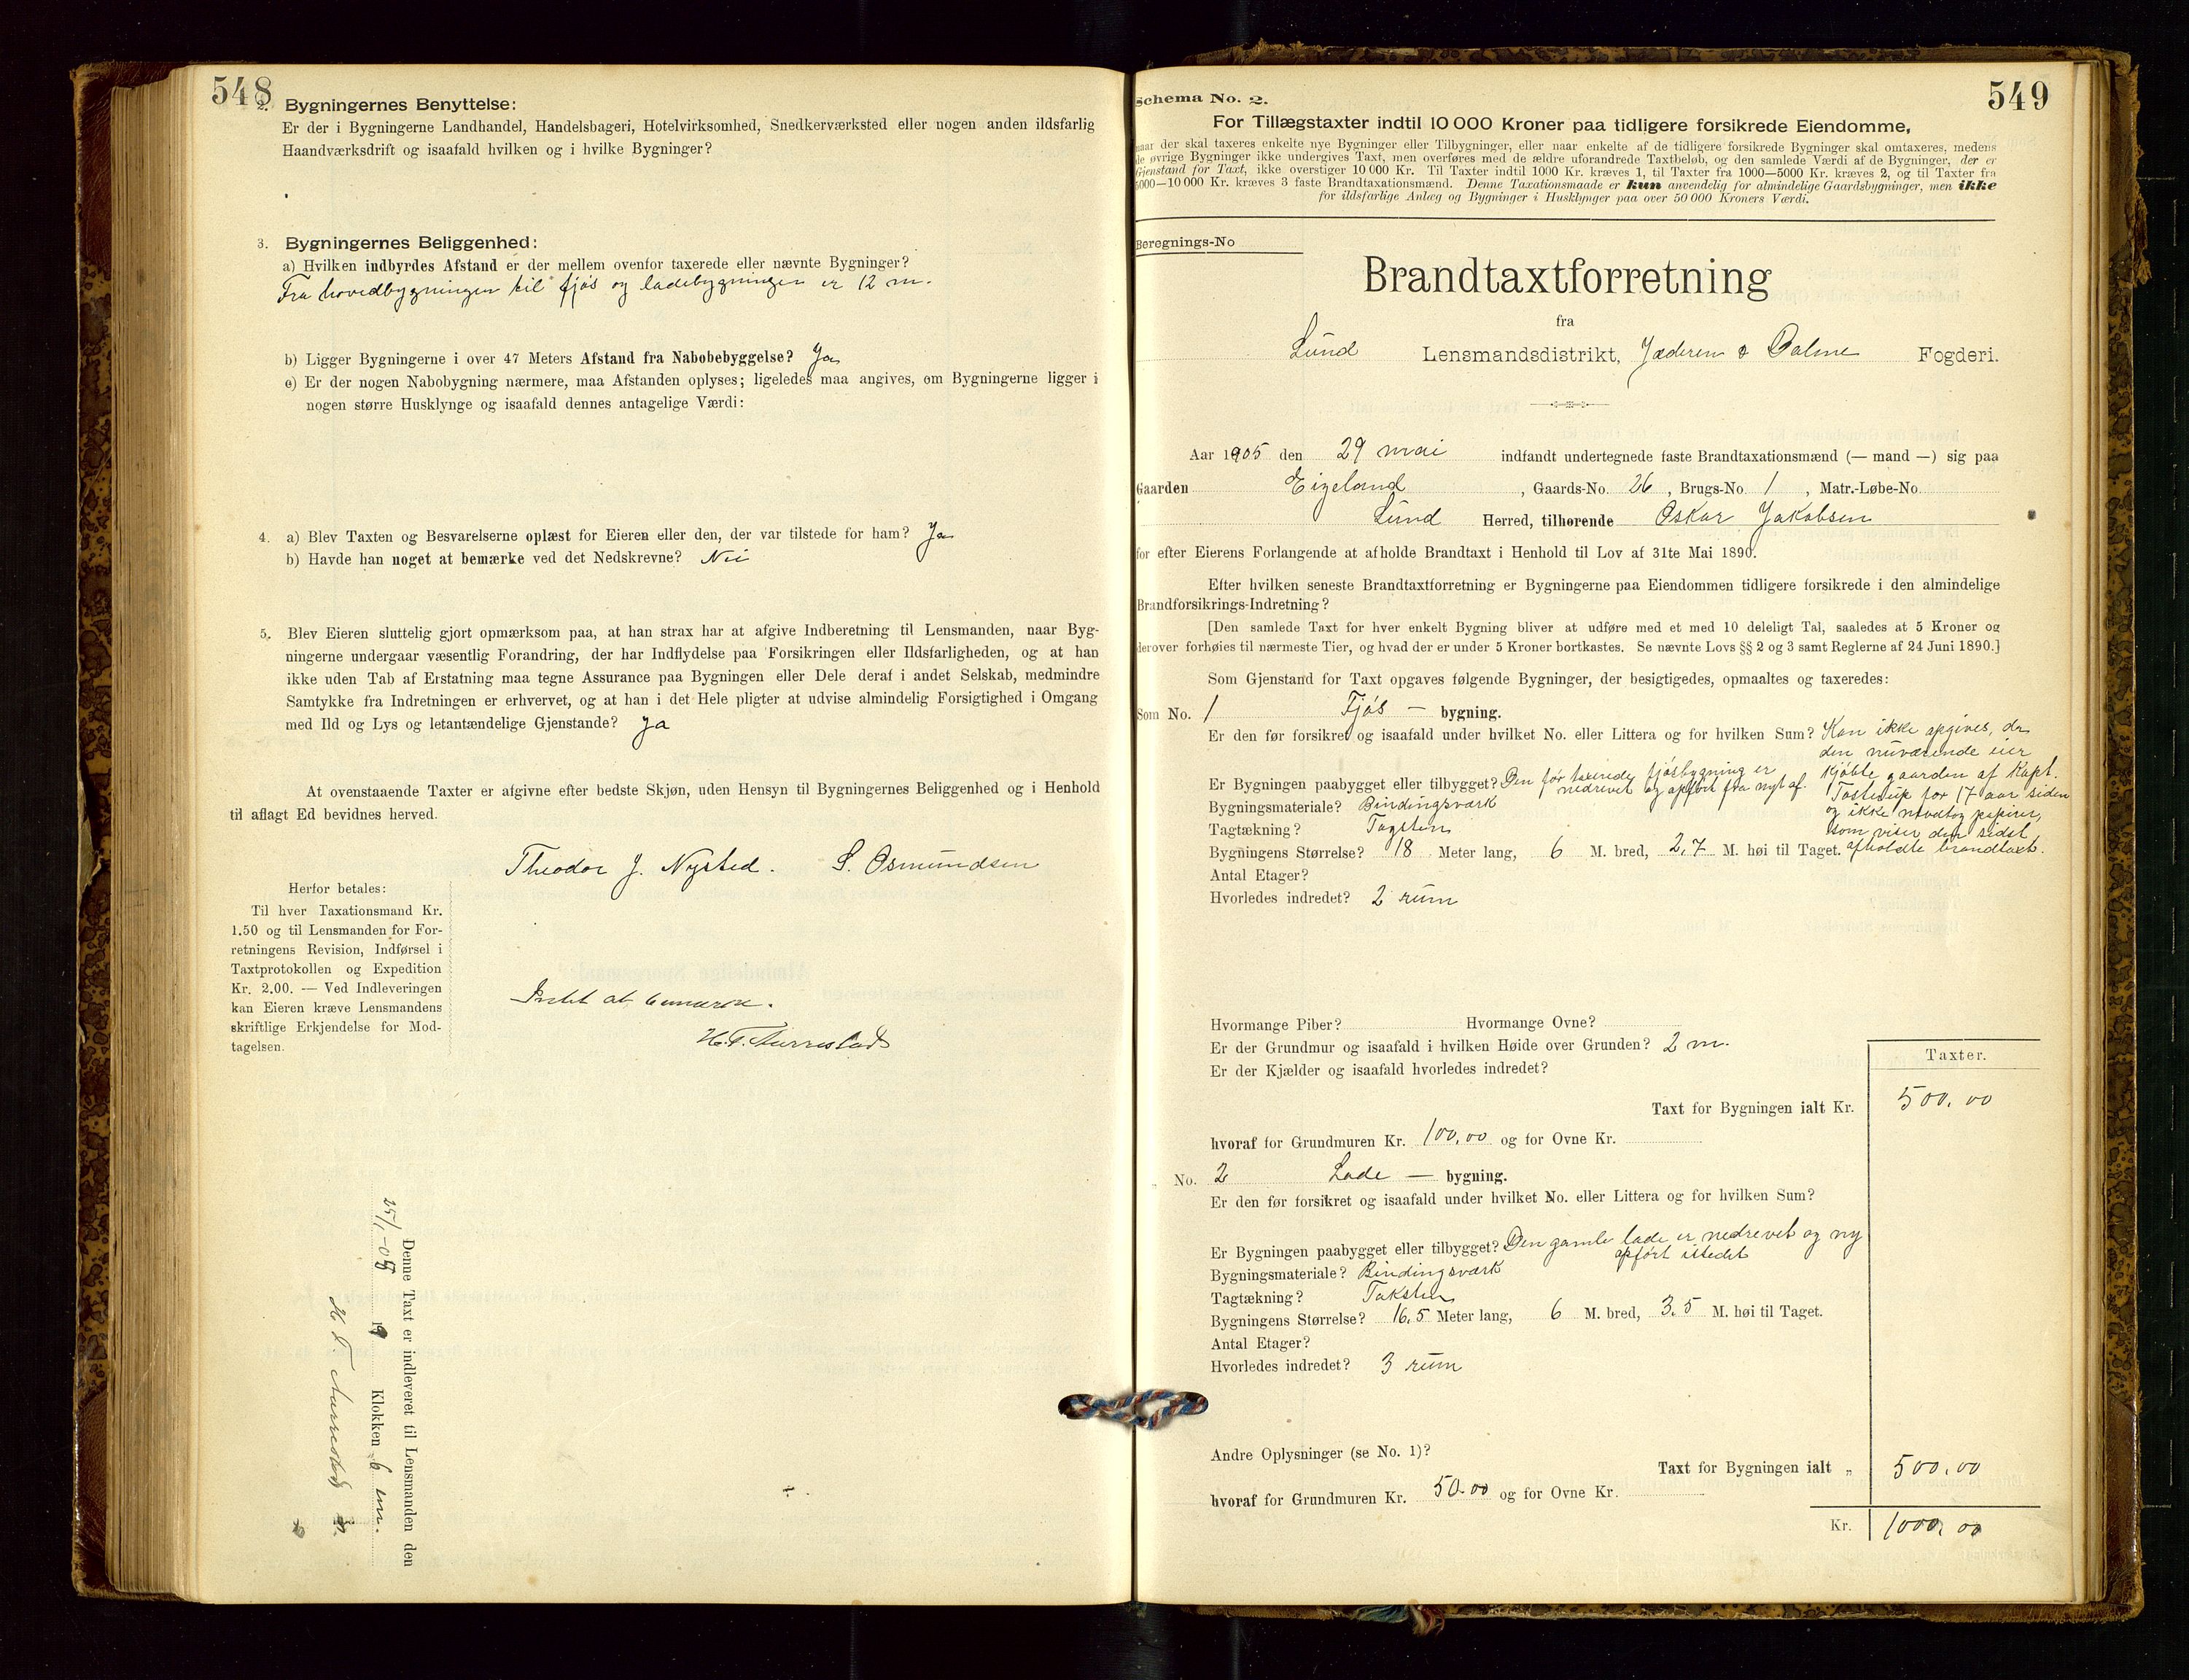 548
2. Bygningernes Benyttelse:
Er der i Bygningerne Landhandel, Handelsbageri, Hotelvirksomhed, Snedkerværksted eller nogen anden ildsfarlig
Haandværksdrift og isaafald hvilken og i hvilke Bygninger?
3. Bygningernes Beliggenhed:
a) Hvilken indbyrdes Afstand er der mellem ovenfor taxerede eller nævnte Bygninger?
Fra hovedbygningen til fjøs og ladebygningen er 12 m.
b) Ligger Bygningerne i over 47 Meters Afstand fra Nabobebyggelse? Ja
c) Er der nogen Nabobygning nærmere, maa Afstanden oplyses; ligeledes maa angives, om Bygningerne ligger i
nogen større Husklynge og isaafald dennes antagelige Værdi:
4. a) Blev Taxten og Besvarelserne oplæst for Eieren eller den, der var tilstede for ham? Ja
b) Havde han noget at bemærke ved det Nedskrevne? Nei
5. Blev Eieren sluttelig gjort opmærksom paa, at han strax har at afgive Indberetning til Lensmanden, naar Byg-
ningerne undergaar væsentlig Forandring, der har Indflydelse paa Forsikringen eller Ildsfarligheden, og at han
ikke uden Tab af Erstatning maa tegne Assurance paa Bygningen eller Dele deraf i andet Selskab, medmindre
Samtykke fra Indretningen er erhvervet, og at han i det Hele pligter at udvise almindelig Forsigtighed i Omgang
med Ild og Lys og letantændelige Gjenstande? Ja
At ovenstaaende Taxter er afgivne efter bedste Skjøn, uden Hensyn til Bygningernes Beliggenhed og i Henhold
til aflagt Ed bevidnes herved.
Theodor J. Nysted. S. Osmundsen
Herfor betales:
Til hver Taxationsmand Kr.
1.50 og til Lensmanden for For-
retningens Revision, Indførsel i
Taxtprotokollen og Expedition
Kr. 2.00. — Ved Indleveringen
kan Eieren kræve Lensmandens
skriftlige Erkjendelse for Mod-
tagelsen.
Intet at bemærke.
H. T. Aurrestad
Denne Taxt er indleveret til Lensmanden den
19 Klokken 6 em.
H T Aurrestad
549
Schema No. 2.
For Tillægstaxter indtil 10 000 Kroner paa tidligere forsikrede Eiendomme,
naar der skal taxeres enkelte nye Bygninger eller Tilbygninger, eller naar enkelte af de tidligere forsikrede Bygninger skal omtaxeres, medens
de øvrige Bygninger ikke undergives Taxt, men overføres med de ældre uforandrede Taxtbeløb, og den samlede Værdi af de Bygninger, der er
Gjenstand for Taxt, ikke overstiger 10 000 Kr. Til Taxter indtil 1000 Kr. kræves 1, til Taxter fra 1000—5000 Kr. kræves 2, og til Taxter fra
5000—10 000 Kr. kræves 3 faste Brandtaxationsmænd. Denne Taxationsmaade er kun anvendelig for almindelige Gaardsbygninger, men ikke
for ildsfarlige Anlæg og Bygninger i Husklynger paa over 50 000 Kroners Værdi.
Beregnings-No
Brandtaxtforretning
fra
Lund Lensmandsdistrikt, Jæderen & Dalene Fogderi.
Aar 1905 den 29 mai indfandt undertegnede faste Brandtaxationsmænd (— mand —) sig paa
Gaarden Eigeland, Gaards-No. 26, Brugs-No. 1, Matr.-Løbe-No.
Lund Herred, tilhørende Oskar Jakobsen
for efter Eierens Forlangende at afholde Brandtaxt i Henhold til Lov af 31te Mai 1890.
Efter hvilken seneste Brandtaxtforretning er Bygningerne paa Eiendommen tidligere forsikrede i den almindelige
Brandforsikrings-Indretning?
[Den samlede Taxt for hver enkelt Bygning bliver at udføre med et med 10 deleligt Tal, saaledes at 5 Kroner og
derover forhøies til nærmeste Tier, og hvad der er under 5 Kroner bortkastes. Se nævnte Lovs §§ 2 og 3 samt Reglerne af 24 Juni 1890.]
Som Gjenstand for Taxt opgaves følgende Bygninger, der besigtigedes, opmaaltes og taxeredes:
Som No. 1 Fjøs — bygning.
Er den før forsikret og isaafald under hvilket No. eller Littera og for hvilken Sum? Kan ikke opgives, da
den nuværende eier
kjøbte gaarden af Kapt.
for 17 aar siden
og ikke modtog papirer,
som viser den sidst
afholdte brandtaxt.
Er Bygningen paabygget eller tilbygget? Den før taxerede fjøsbygning er
nedrevet og opført fra nyt af.
Bygningsmateriale? Bindingsværk
Tagtækning? Tagsten
Bygningens Størrelse? 18 Meter lang, 6 M. bred, 2,7 M. høi til Taget.
Antal Etager?
Hvorledes indredet? 2 rum
Hvormange Piber? Hvormange Ovne?
Er der Grundmur og isaafald i hvilken Høide over Grunden? 2 m.
Er der Kjælder og isaafald hvorledes indredet?
Taxter.
Taxt for Bygningen ialt Kr. 500,00
hvoraf for Grundmuren Kr. 100,00 og for Ovne Kr.
„ No. 2 Lade — bygning.
Er den før forsikret og isaafald under hvilket No. eller Littera og for hvilken Sum?
Er Bygningen paabygget eller tilbygget? Den gamle lade er nedrevet og ny
opført istedet
Bygningsmateriale? Bindingsværk
Tagtækning? Taksten
Bygningens Størrelse? 16,5 Meter lang, 6 M. bred, 3,5 M. høi til Taget.
Antal Etager?
Hvorledes indredet? 3 rum
Andre Oplysninger (se No. 1)?
Taxt for Bygningen ialt „ 500,00
hvoraf for Grundmuren Kr. 50.00 og for Ovne Kr.
Kr. 1000,00